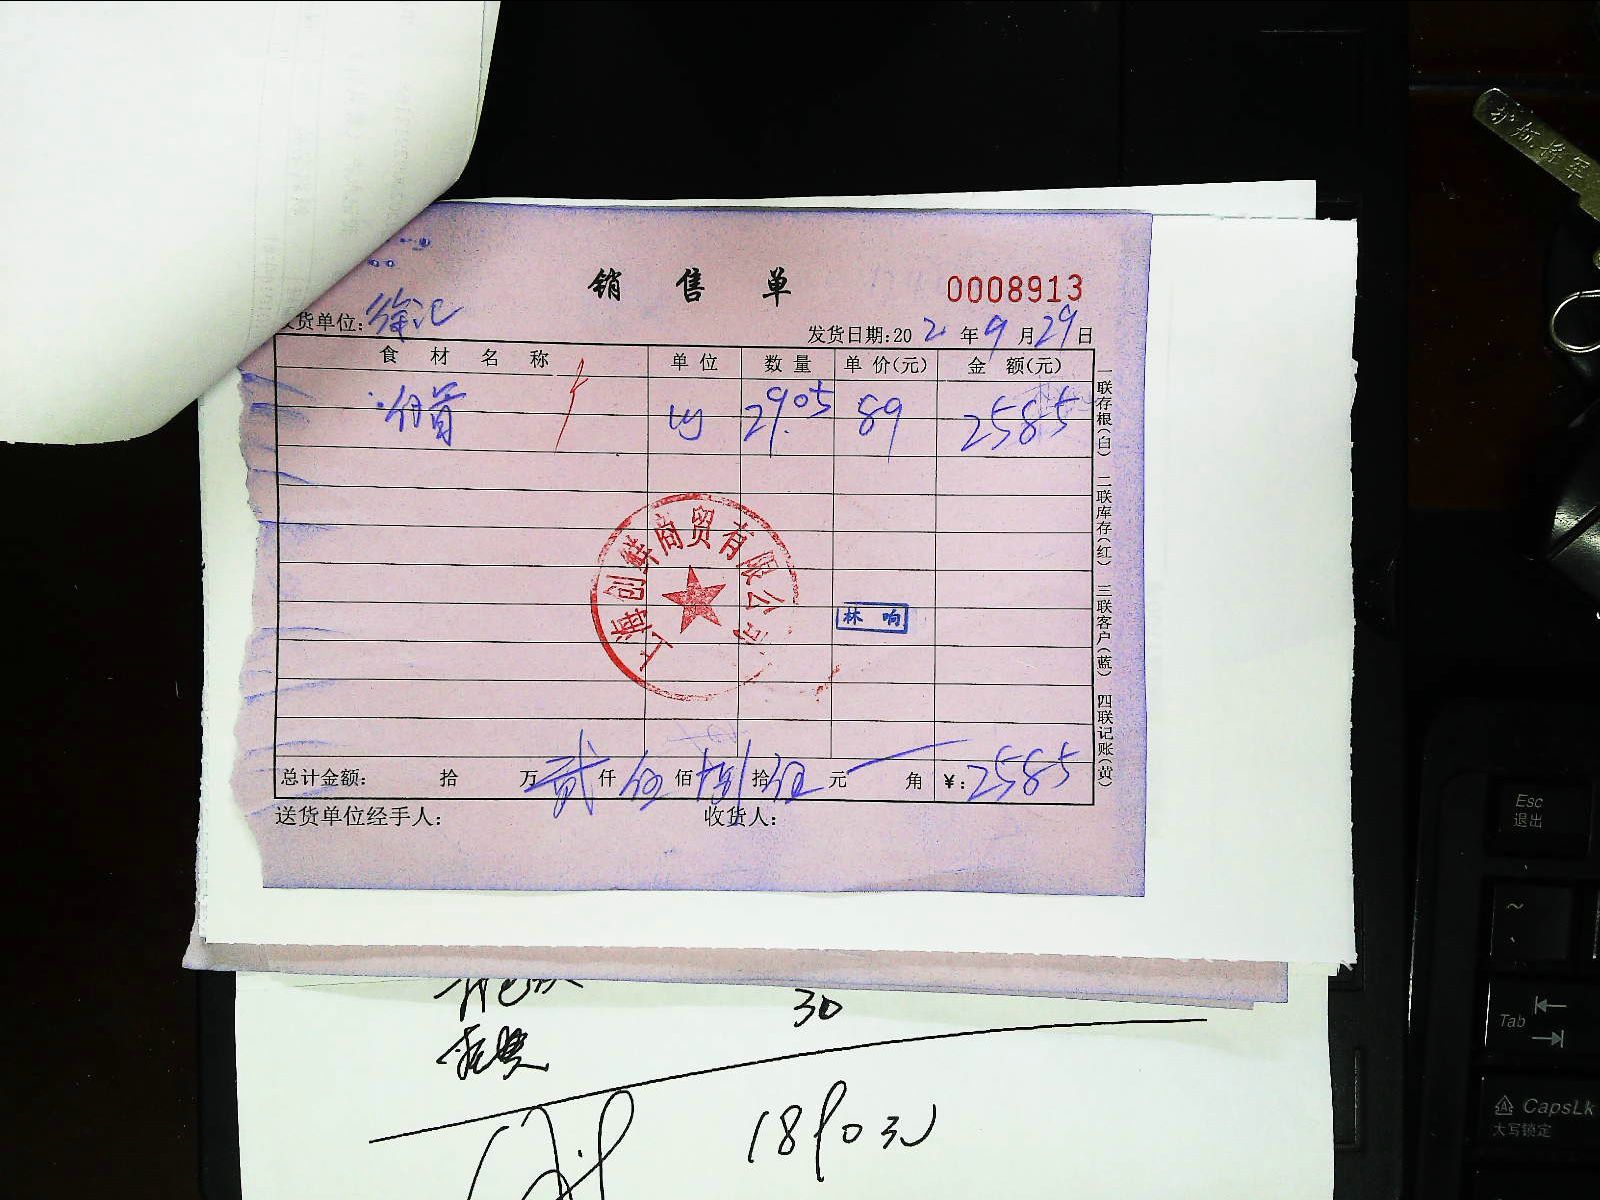 销售单
0008913
货单位: 徐汇
发货日期:202 年 9 月 29 日
食材名称 单位 数量 单价(元) 金额(元)
29.05 89 2585
一联存根(白) 二联库存(红) 三联客户(蓝) 四联记账(黄)
上海创鲜商贸有限公司
林响
总计金额: 拾 万 贰 仟 伍 佰 捌 拾 伍 元 角 ¥: 2585
送货单位经手人: 收货人:
30
1890元
护航将军
Esc
退出
~
Tab
CapsLk
大写锁定